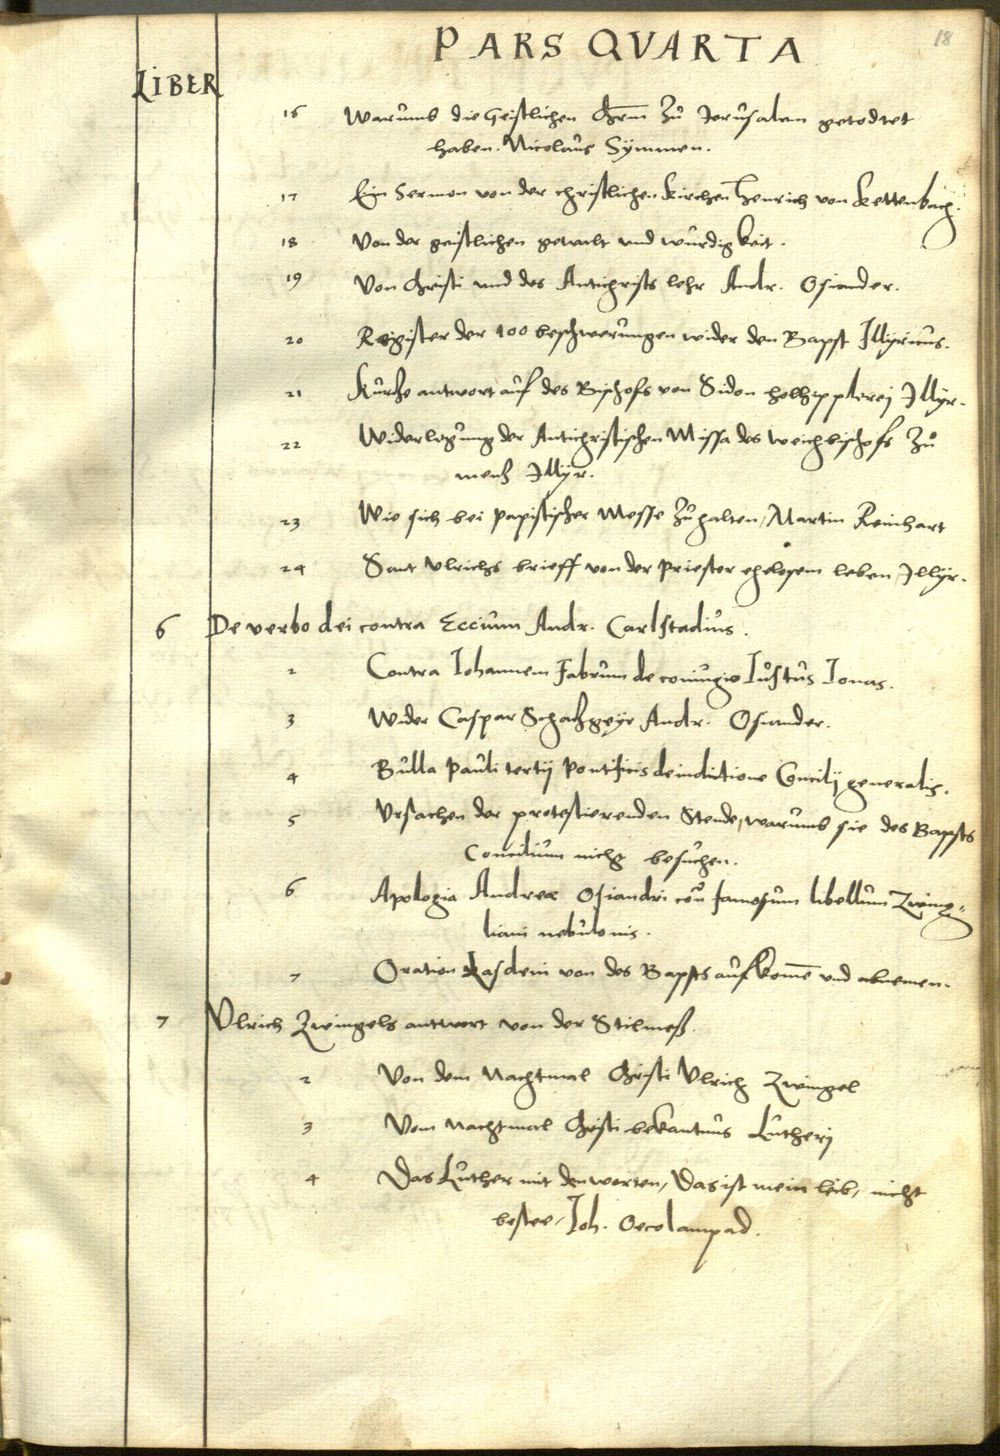 18
PARS QVARTA
LIBER
16 Warumb die Geistlichen Chrm̄ zů Jerusalem getodtet
haben. Nicolaus Symmen.
17 Ein Sermon von der christlichen kirchen Henrich von Kettenbach.
18 Von der geistlichen gewalt und wurdigkeit.
19 Von Christi und des Antichrists lehr Andr. Osiander.
20 Register der 100 beschwerungen wider den Bapst Illyricus.
21 Kurtze antwort auf des Bischofs von Sidon holhipplerej Illyr.
22 Widerlegung der Antichristischen Missa des weichbischofs zů
mentz Illyr.
23 Wie sich bei papistischer Messe zů halten, Martin Reinhart
24 Sant Ulrichs brieff von der Priester ehelosem leben, Illyr.
6 De verbo dei contra Eccium Andr. Carlstadius.
2 Contra Iohannem Fabrum de coniugio Iustus Ionas.
3 Wider Caspar Schatzgeyr Andr. Osiander.
4 Bulla Pauli tertij Pontificis de indictione Concilij generalis.
5 Ursachen der protestierenden Stende, warumb sie des Bapsts
Concilium nicht besuchen.
6 Apologia Andreæ Osiandri coñ famosum libellum Zwing-
liani nebulonis.
7 Oration Lasdeni von des Bapsts aufkomē und abnemen.
7 Ulrich Zwingels antwort von der Stilmeß.
2 Von dem Nachtmal Christi Ulrich Zwingel
3 Vom Nachtmal Christi bekantnus Lutherj
4 Das Luther mit den worten, Das ist mein leib, nicht
bestee, Joh. Oecolampad.